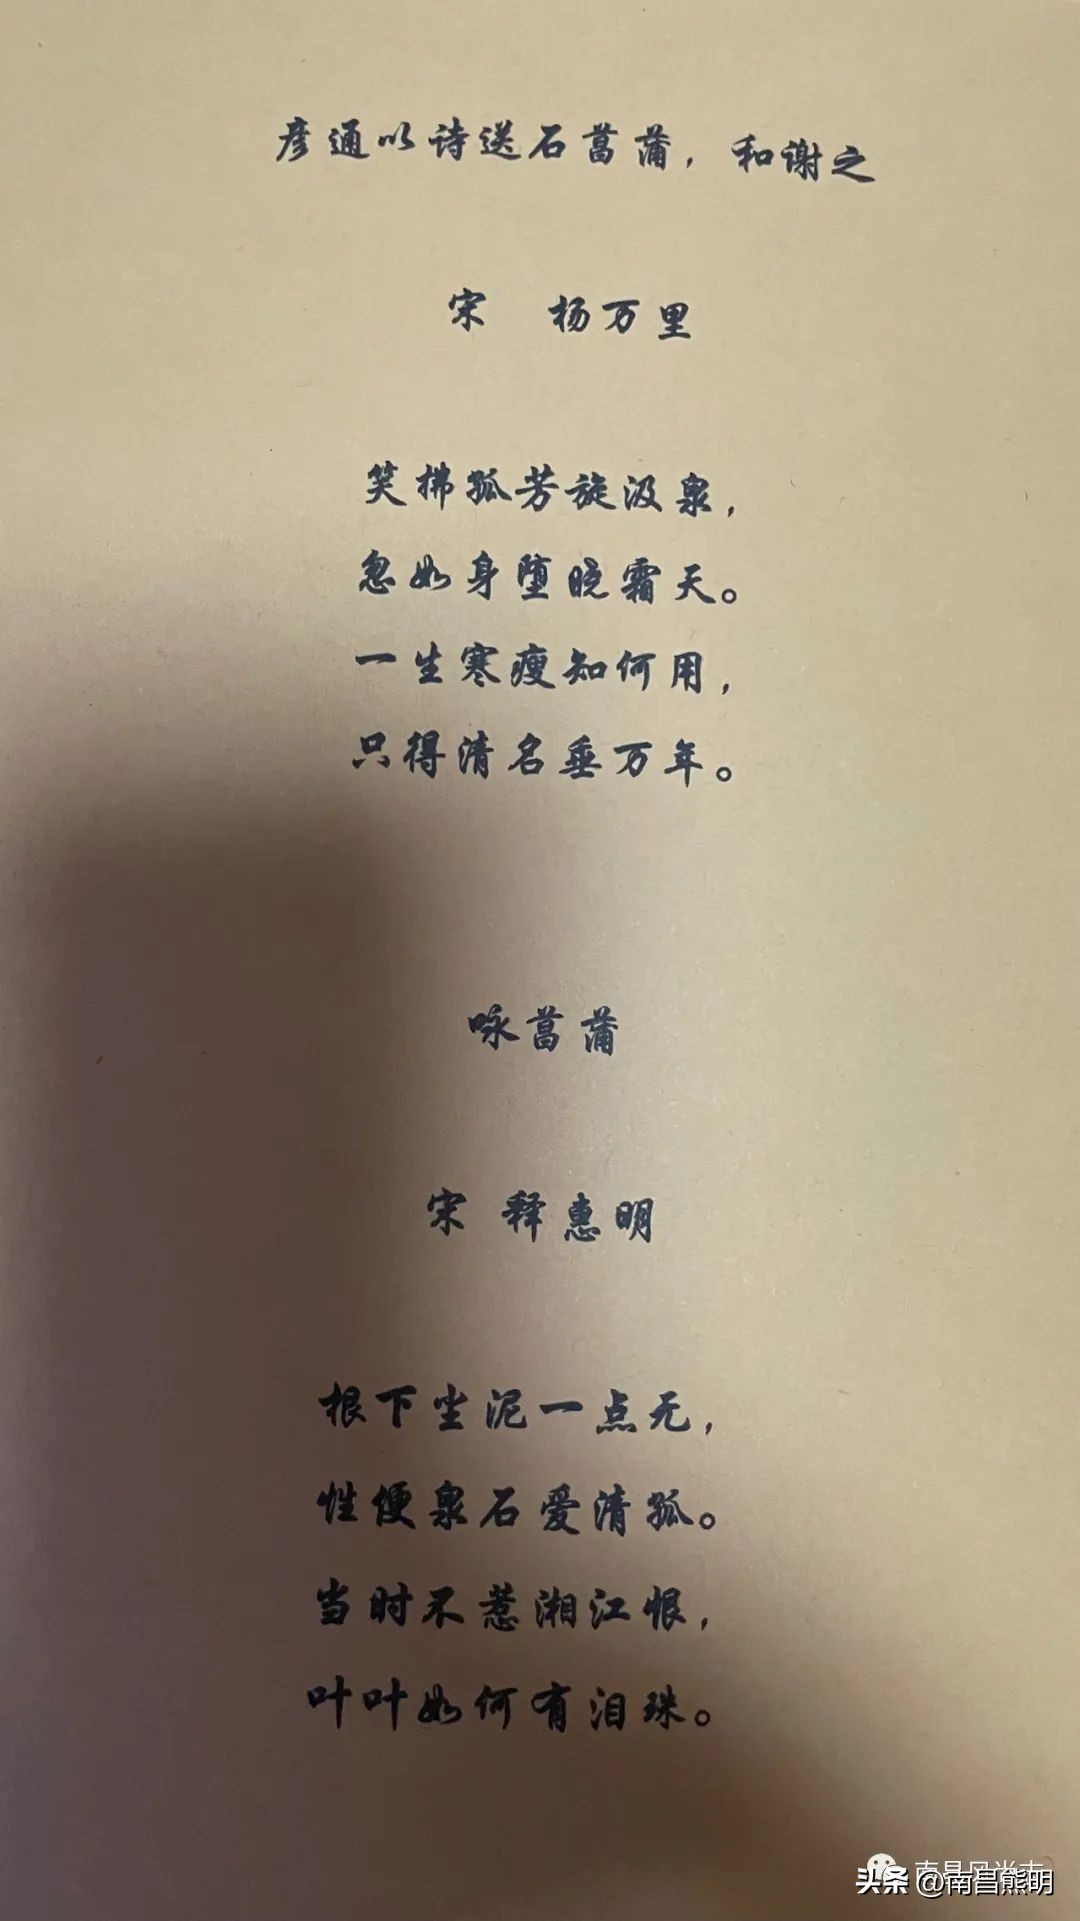 彦通以诗送石菖蒲，和谢之
宋 杨万里
笑拂孤芳旋汲泉，
忽如身堕晓霜天。
一生寒瘦知何用，
只得清名垂万年。
咏菖蒲
宋 释惠明
根下尘泥一点无，
性便泉石爱清孤。
当时不惹湘江恨，
叶叶如何有泪珠。
头条 @南昌熊明